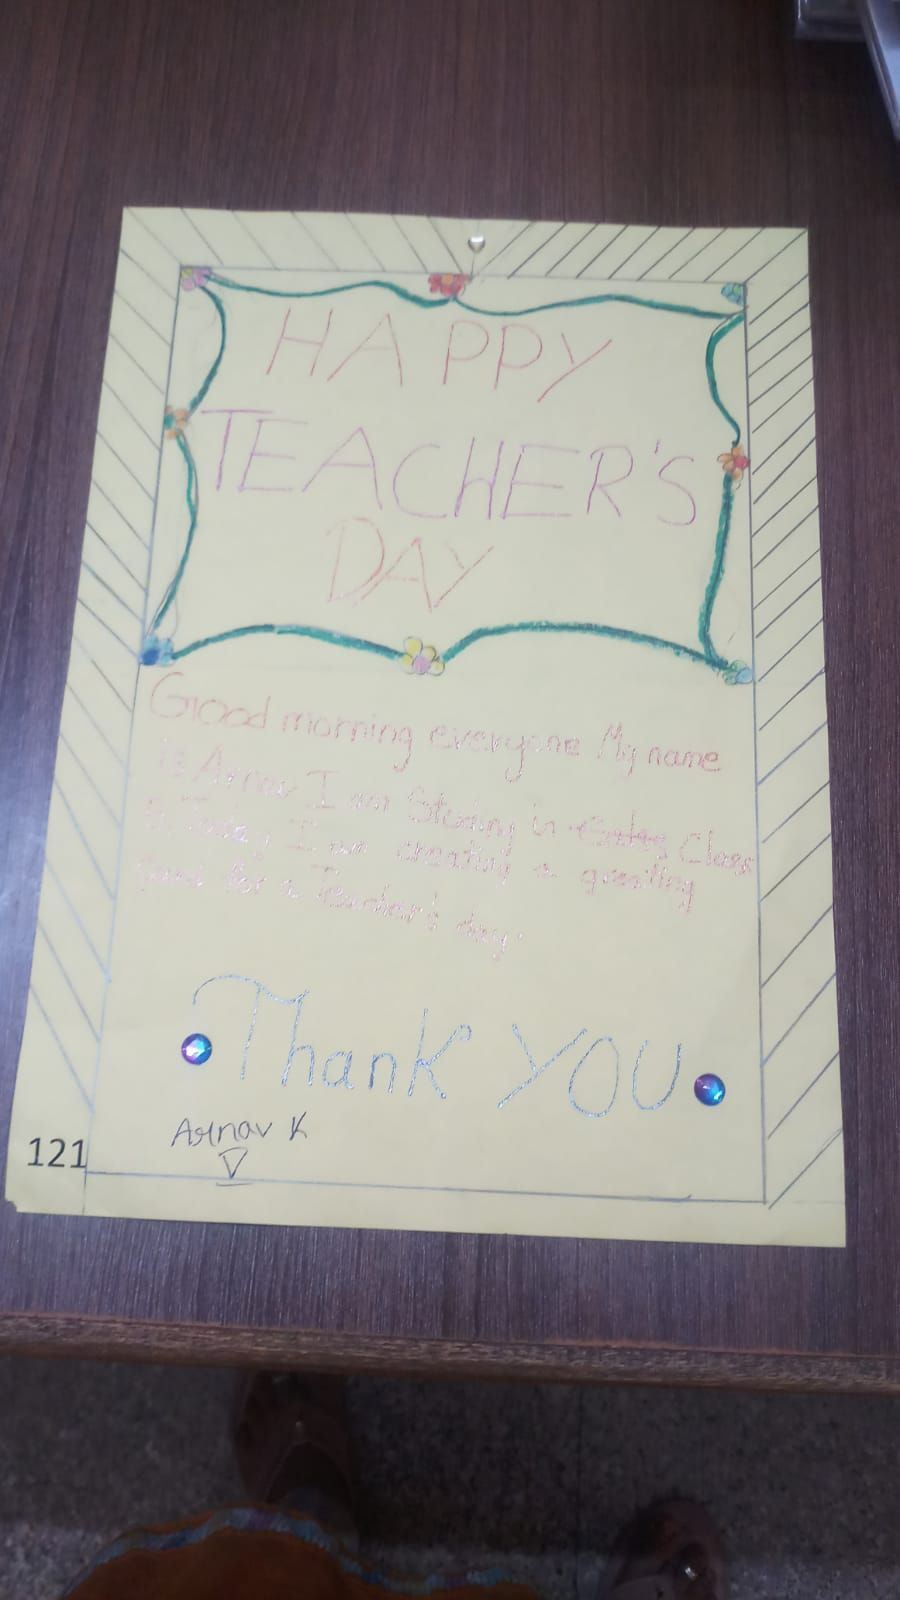 HAPPY
TEACHER'S
DAY
Good morning everyone My name
is Arnav I am Studing in Class
5. Today I am creating a greeting
Card for a Teacher's day.
Thank YOU
Arnav K
V
121